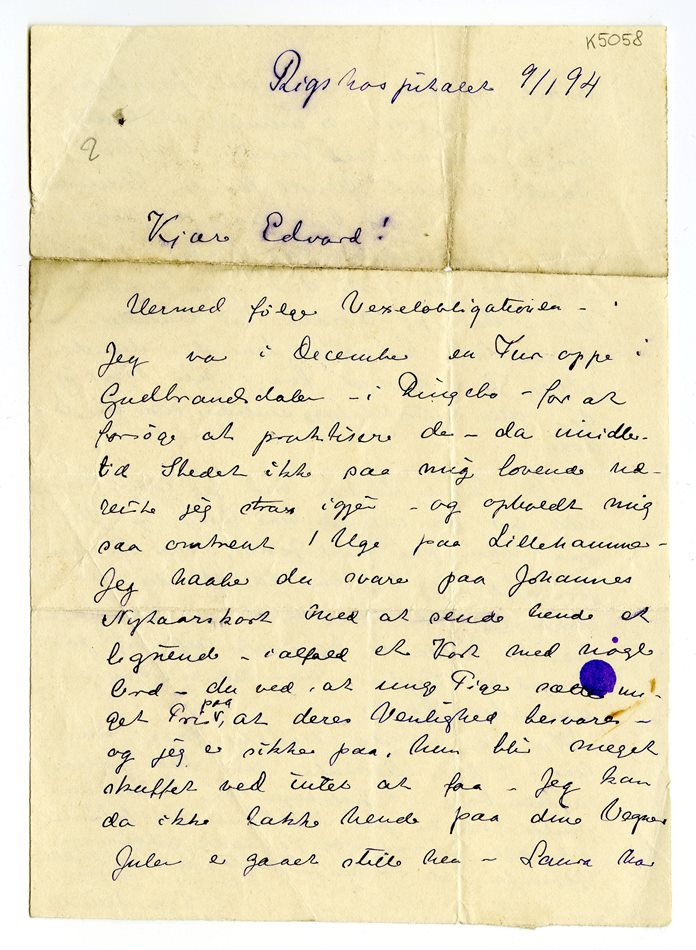 K5058
Rigshospitalet 9/1 94
2
Kjære Edvard!
Hermed følge Vexelobligationen –
Jeg var i December en Tur oppe i
Gudbrandsdalen – i Ringebo – for at
forsöge at praktisere der – da imidler-
tid Stedet ikke saa mig lovende ud –
reiste jeg strax igjen – og opholdt mig
saa omtrent 1 Uge paa Lillehammer –
Jeg haaber du svarer paa Johannes
Nytaarskort med at sende hende et
lignende – ialfald et Kort med nogle
Ord – du ved, at unge Piger sætter me-
get Pris paa, at deres Venlighed besvares –
og jeg er sikker paa, hun blir meget
skuffet ved intet at faa – Jeg kan
da ikke takke hende paa dine Vegne
Julen er gaaet stille hen – Laura har